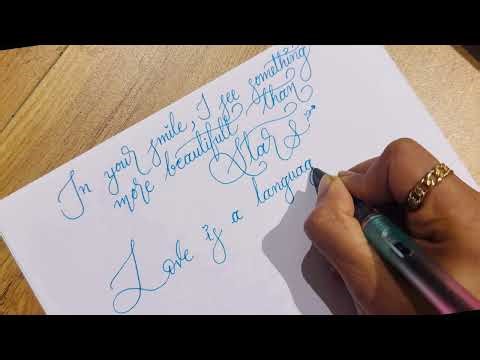 In your smile, I see something
more beautifull than
Stars
Love is a languag